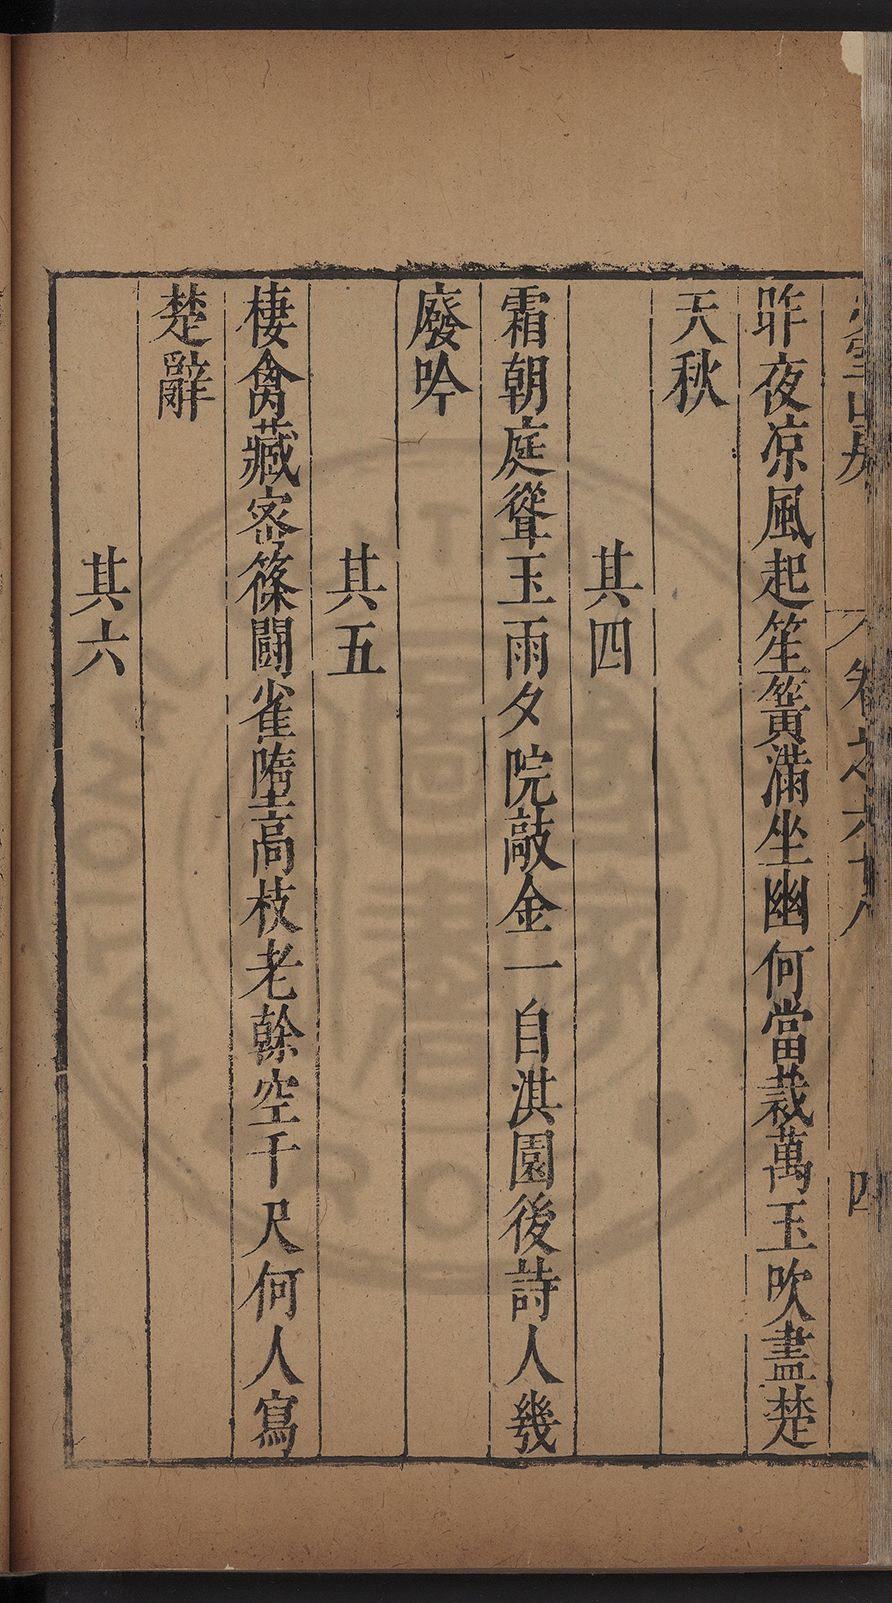 卷之六十八
四
昨夜凉風起笙簧滿坐幽何當栽萬玉吹盡楚
天秋
其四
霜朝庭聳玉雨夕院敲金一自淇園後詩人幾
廢吟
其五
棲禽藏密篠鬪雀墮高枝老榦空千尺何人寫
楚辭
其六